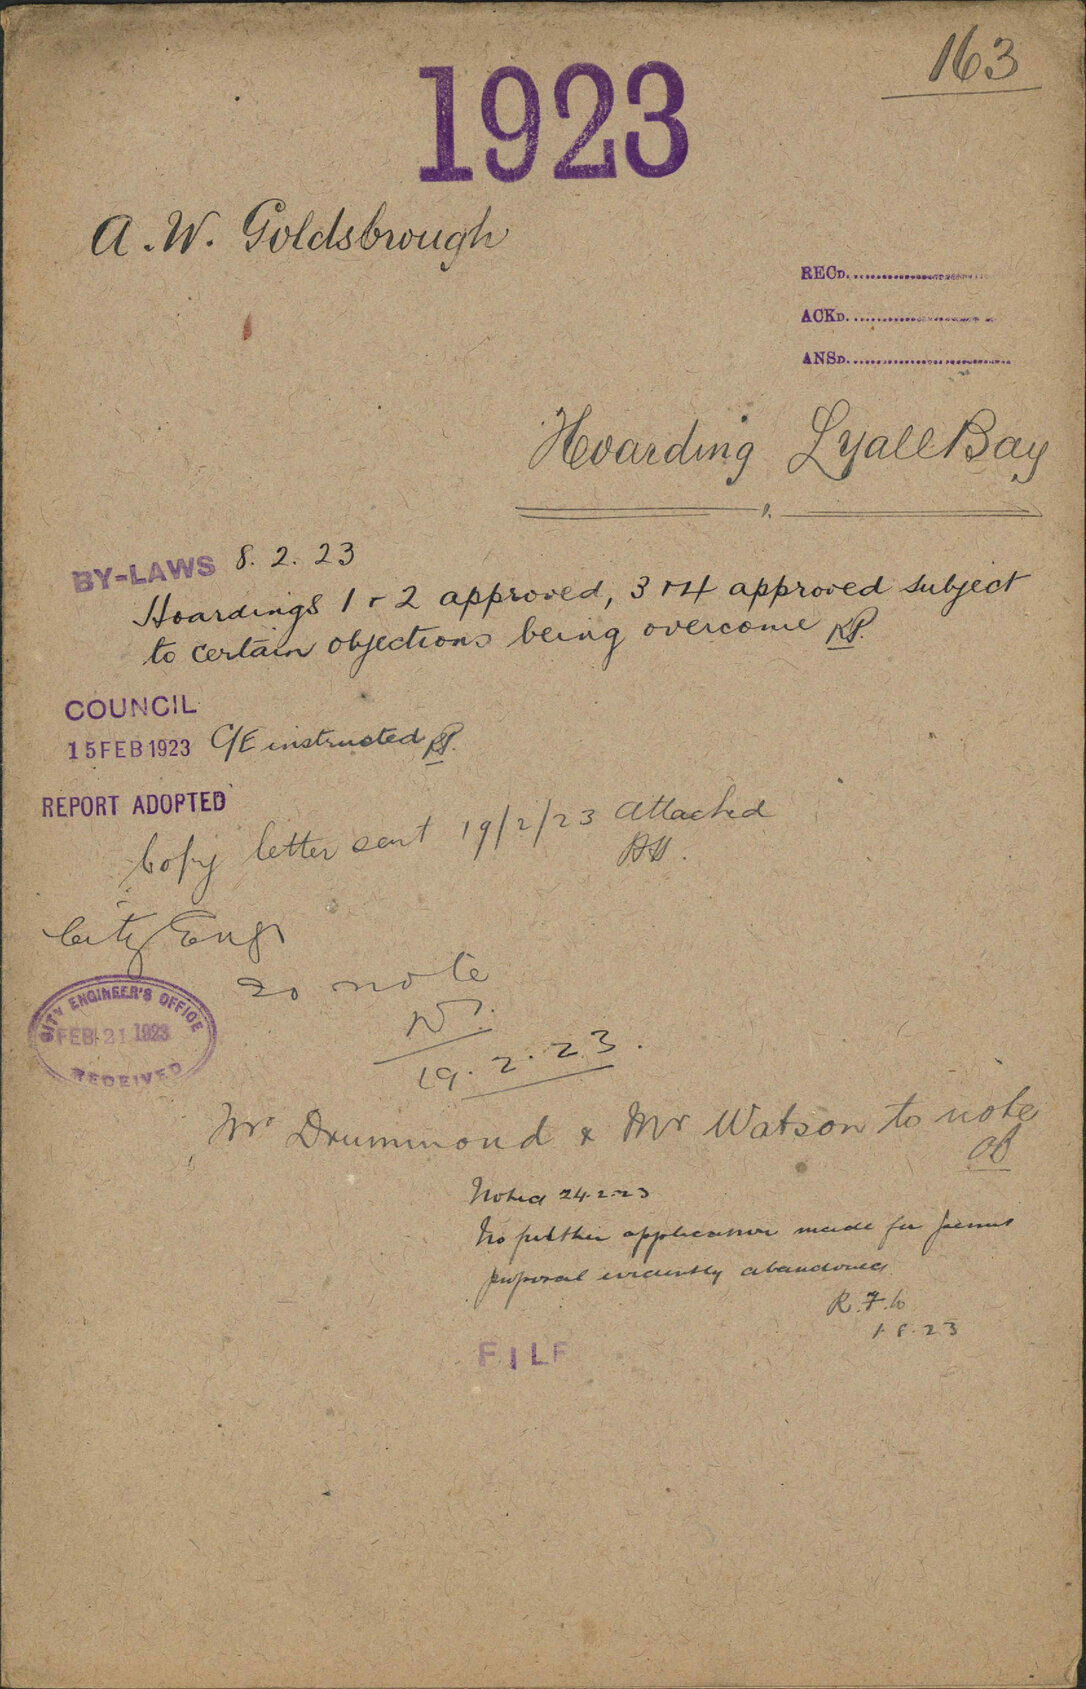 163
1923
A. W. Goldsbrough
RECD.
ACKD.
ANSD.
Hoarding Lyall Bay
BY-LAWS 8. 2. 23
Hoardings 1 & 2 approved, 3 & 4 approved subject
to certain objections being overcome
COUNCIL
15 FEB 1923 C/E instructed
REPORT ADOPTED
Copy letter sent 19/2/23 attached
City Engr
to note
CITY ENGINEER'S OFFICE
FEB 21 1923
RECEIVED
19. 2. 23.
Mr Drummond & Mr Watson to note
Noted 24.2.23
No further application made for permit
proposal evidently abandoned
1.8.23
FILE